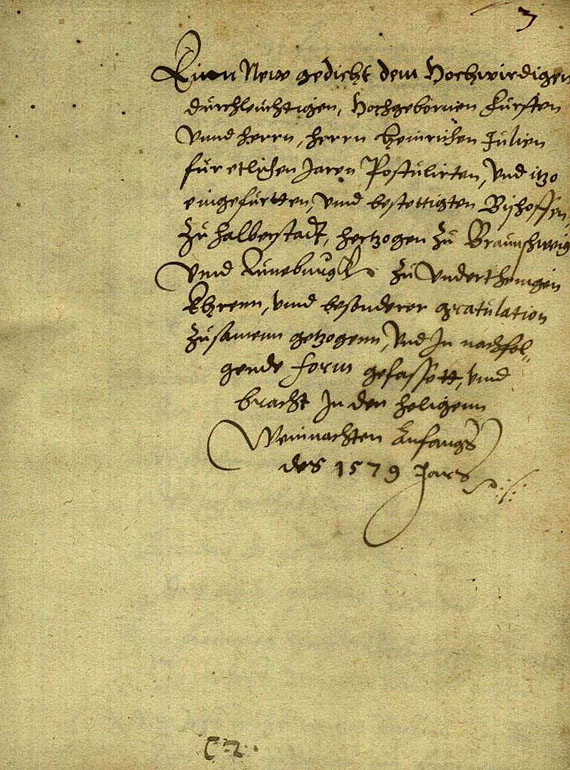 3
Einn New gedicht dem Hochwirdigen
durchleuchtigen, Hochgebornen Fursten
vnnd herrn, herrn Heinrichen Julien
für etlichen Jaren Postulirten, vnd itzo
eingefürtten, vnnd bestettigten Bischoffen
zu Halberstadt, hertzogen zu Braunschweig
vnnd Luneburgk zu vnderthenigen
Ehrenn, vnnd besonderer gratulation
zusamenn getzogenn, vnd In nachfol-
gende form gefassett, vnnd
bracht In den heligenn
Weinnachten Anfangs
des 1579 Jars
C 2.